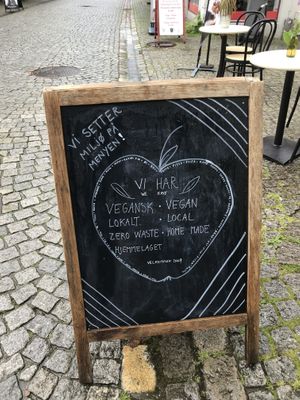 VI SETTER
MILJØ PÅ
MENYEN!
VI HAR
VEGANSK · VEGAN
LOKALT · LOCAL
ZERO WASTE · HOME MADE
HJEMMELAGET
VELKOMMEN